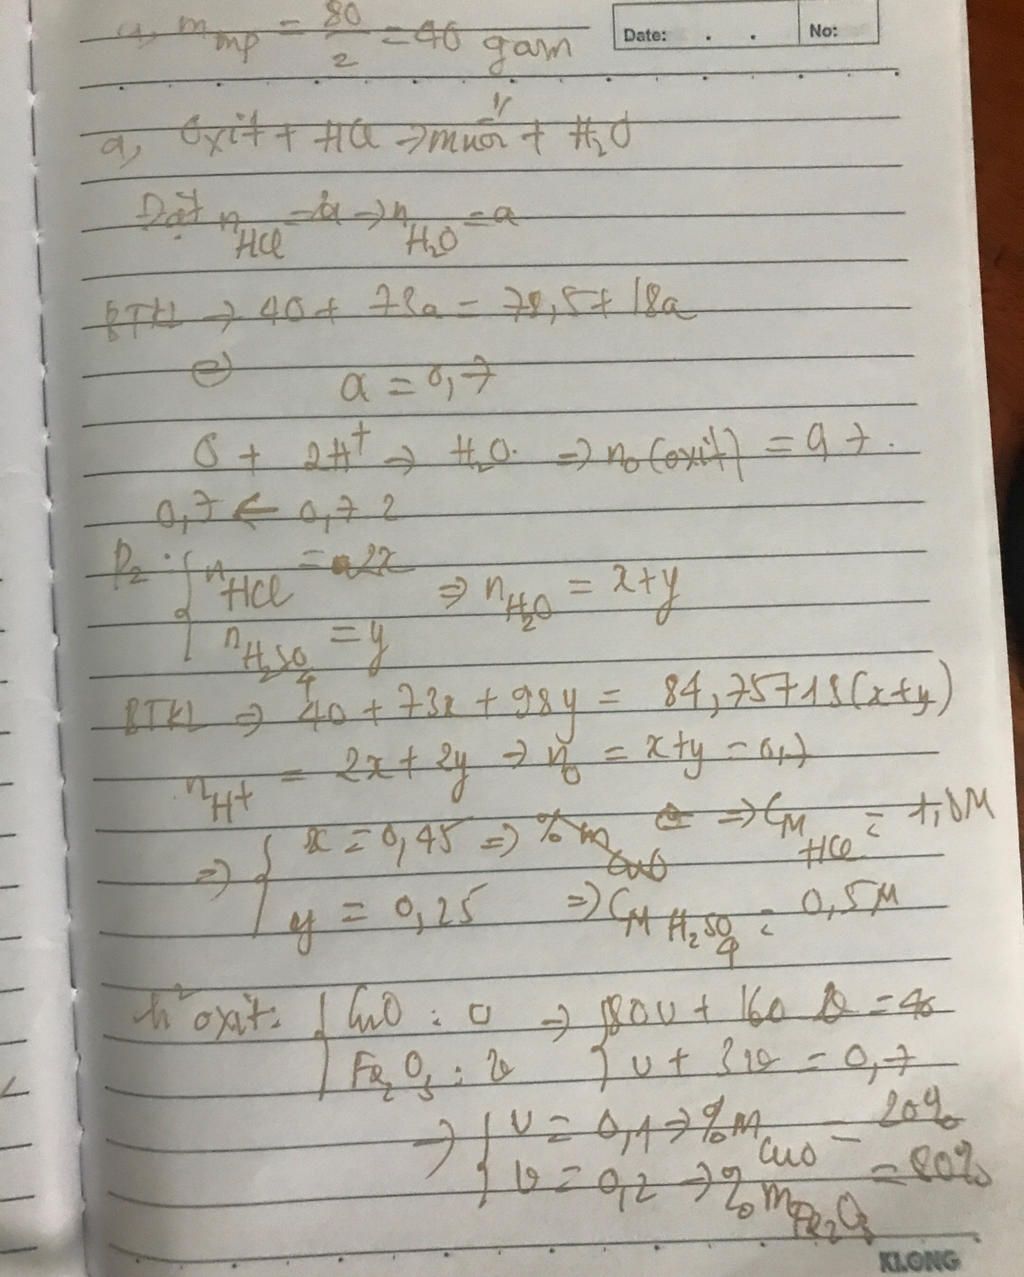 a, m mp = 80/2 = 40 gam
Date: . . No:
a, Oxit + HCl → muối + H₂O
Đặt n HCl = a → n H₂O = a
BTKL → 40 + 73a = 78,5 + 18a
⇔ a = 0,7
O + 2H⁺ → H₂O. ⇒ nO (oxit) = 0,7.
0,7 ← 0,7 2
P₂ : { n HCl = 2x ⇒ n H₂O = x+y
n H₂SO₄ = y
BTKL ⇒ 40 + 73x + 98y = 84,75 + 18(x+y)
n H+ = 2x + 2y → nO = x+y = 0,7
⇒ { x = 0,45 ⇒ % m CuO ⇒ CM HCl = 1,8M
y = 0,25 ⇒ CM H₂SO₄ = 0,5M
h² oxit: { CuO : u → { 80u + 160v = 40
Fe₂O₃ : v { u + 3v = 0,7
→ { u = 0,1 → %m CuO = 20%
v = 0,2 → %m Fe₂O₃ = 80%
KLONG